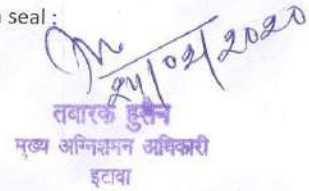 seal :
24/02/2020
तबारक हुसैन
मुख्य अग्निशमन अधिकारी
इटावा